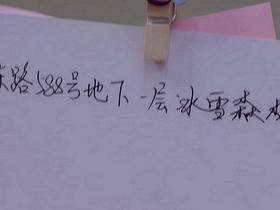 路588号地下一层冰雪森